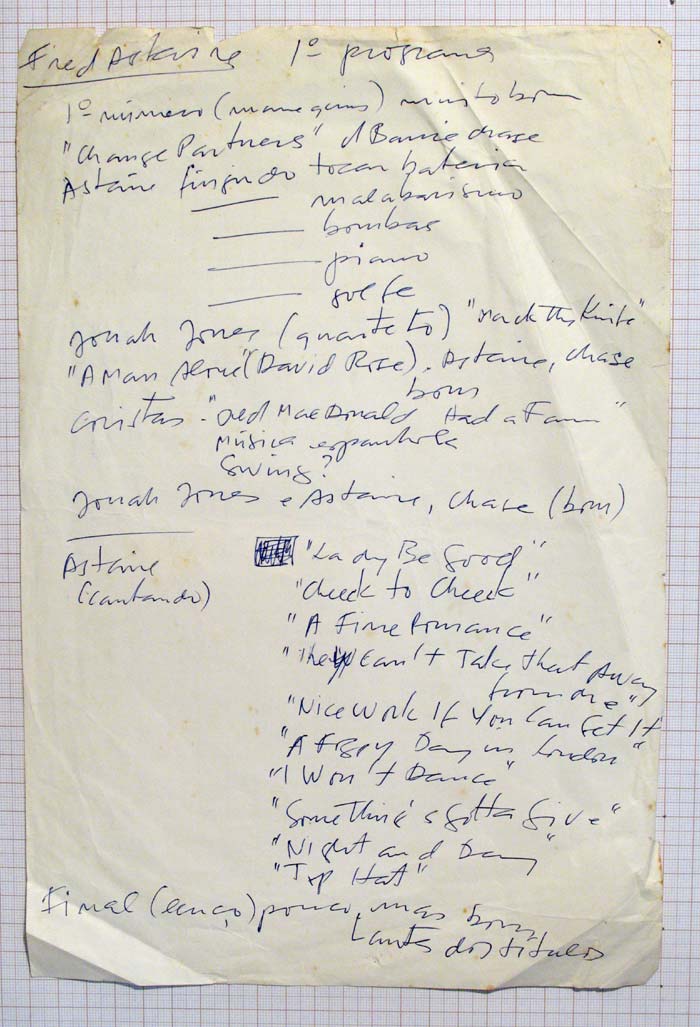 Fred Astaire 1º programa
1º número (manequins) muito bom
"Change Partners" c/ Barrie Chase
Astaire fingindo tocar bateria
malabarismo
bombas
piano
golfe
Jonah Jones (quarteto) "Mack the Knife"
"A Man Alone" (David Rose). Astaire, Chase
bom
"Old MacDonald Had a Farm"
música espanhola
Swing?
Jonah Jones e Astaire, Chase (bom)
Astaire
(cantando)
"Lady Be Good"
"Cheek to Cheek"
"A Fine Romance"
"They Can't Take that Away
from me"
"Nice Work If You Can Get It
"A Foggy Day in London"
"I Won't Dance"
"Something's Gotta Give"
"Night and Day"
"Top Hat"
Final (lenço) pouco, mas bom
antes dos títulos